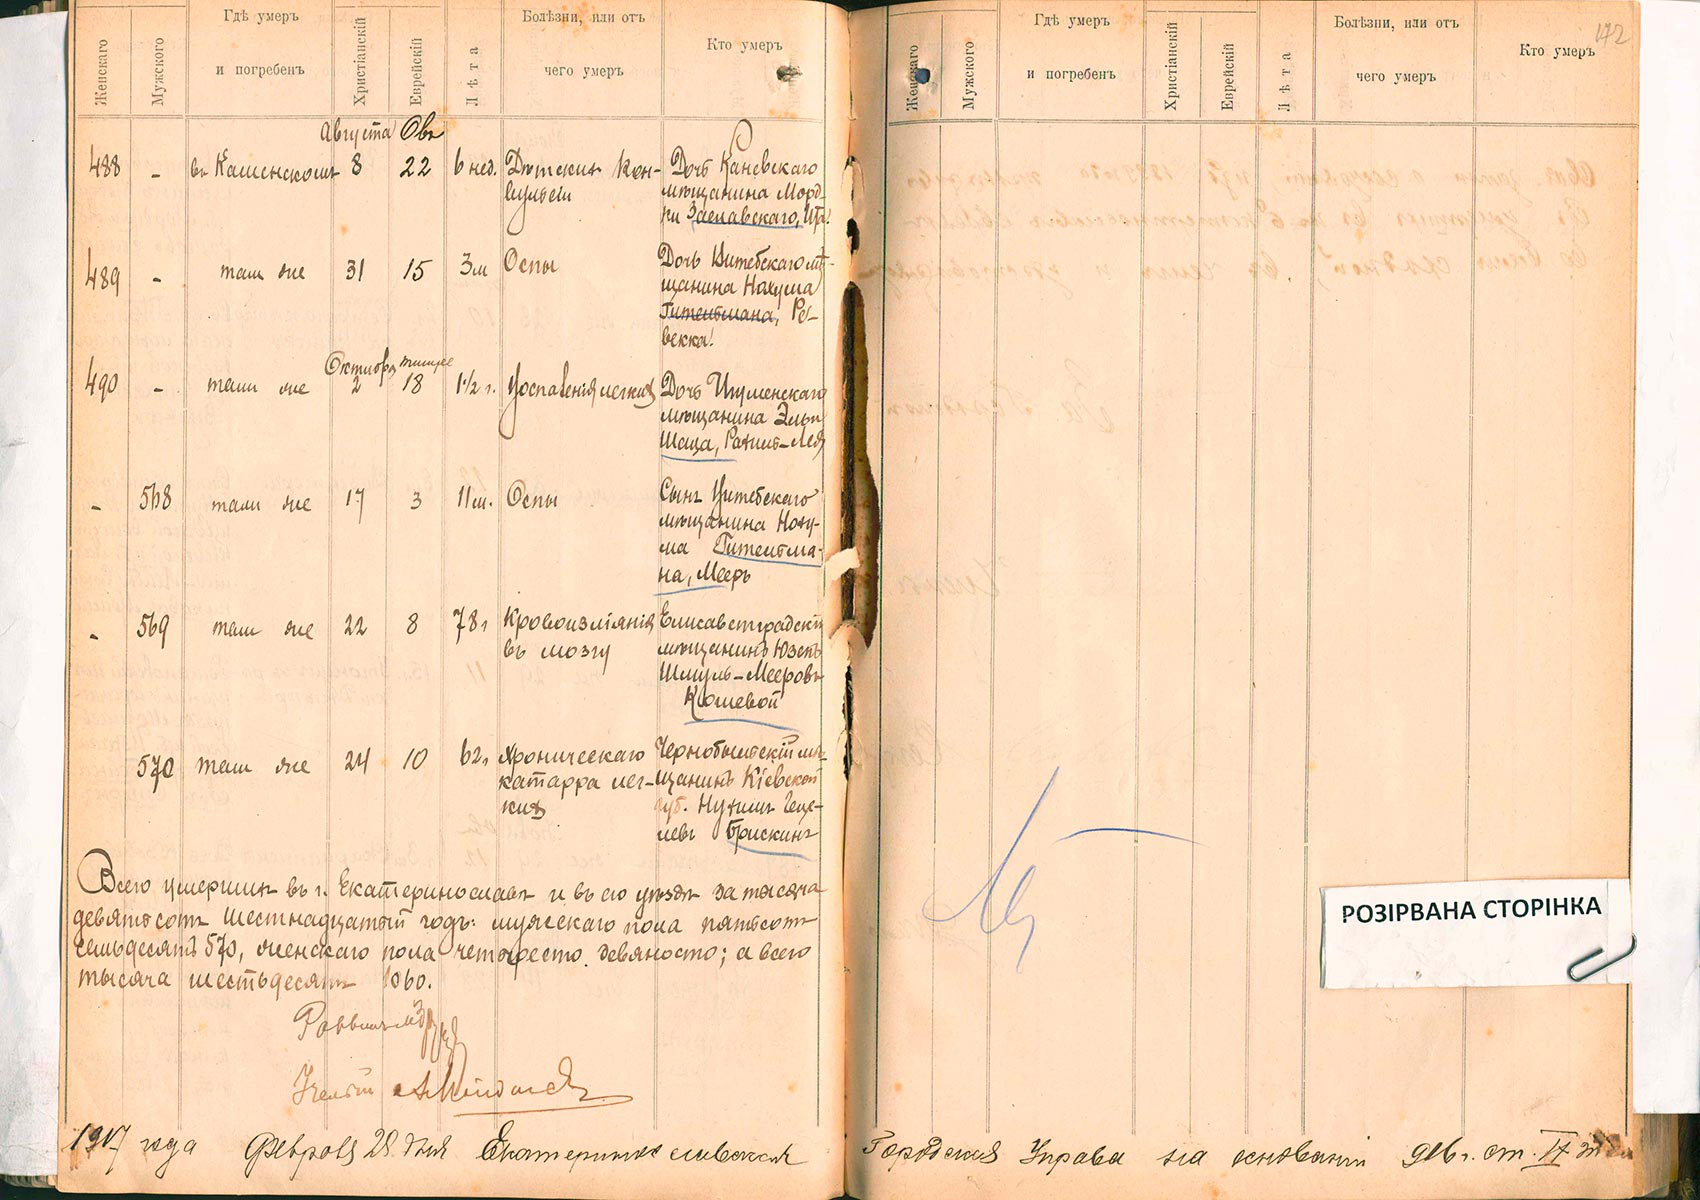 Женскаго
Мужского
Гдѣ умеръ
и погребенъ
Христіанскій
Еврейскій
Лѣта
Болѣзни, или отъ
чего умеръ
Кто умеръ
Августа Овъ
488 - въ Каменскомъ 8 22 6 нед. Дѣтскихъ кон-
вульсій
Дочь Каневскаго
мѣщанина Морд-
ки Заславскаго,
489 - тамъ же 31 15 3 м Оспы
Дочь Витебскаго мѣ-
щанина Нохума
Гительмана, Ре-
векка
Октября тишре
490 - тамъ же 2 18 1 1/2 г. Воспаленія легкихъ
Дочь Игуменскаго
мѣщанина Эльи
Шаца, Рахиль-Лея
- 568 тамъ же 17 3 11 м. Оспы
Сынъ Витебскаго
мѣщанинаНоху-
ма Гительма-
на, Мееръ
- 569 тамъ же 22 8 78 г Кровоизліянія
въ мозгу
Елисаветградскій
мѣщанинъ Юзепъ
Шмуль-Мееровъ
Кошевой
570 тамъ же 24 10 62 г Хроническаго
катарра лег-
кихъ
Чернобыльскій мѣ-
щанинъ Кіевской
губ. Нухимъ Геце-
левъ Брискинъ
Всего умершихъ въ г. Екатеринославѣ и въ его уѣздѣ за тысяча
девятьсотъ шестнадцатый годъ: мужескаго пола пятьсотъ
семьдесятъ 570, женскаго пола четыреста девяносто; а всего
тысяча шестьдесятъ 1060.
1917 года Февраля 28 дня Екатеринославская Городская Управа на основаніи 916 г. ст. IX т.
172
Женскаго
Мужского
Гдѣ умеръ
и погребенъ
Христіанскій
Еврейскій
Лѣта
Болѣзни, или отъ
чего умеръ
Кто умеръ
РОЗІРВАНА СТОРІНКА